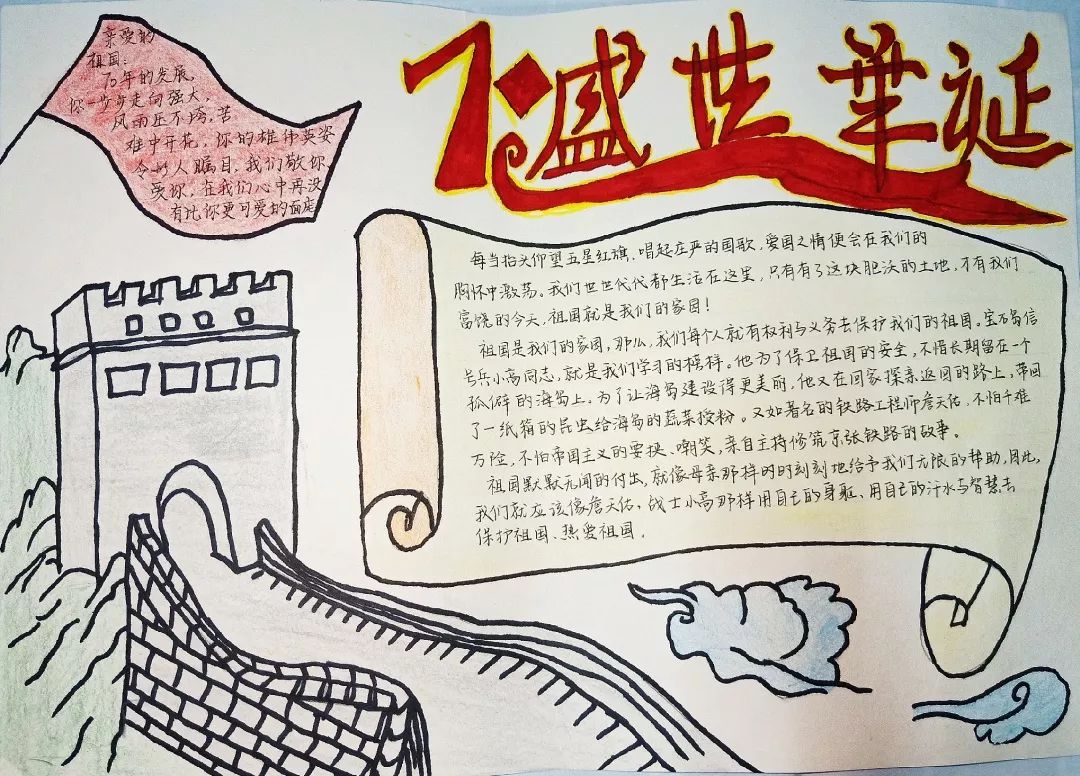 亲爱的
祖国:
70年的发展,
你一步步走向强大,
风雨还不垮,苦
难中开花,你的雄伟英姿
令世人瞩目,我们敬你,
爱你,在我们心中再没
有比你更可爱的面庞
70盛世華延
每当抬头仰望五星红旗、唱起庄严的国歌,爱国之情便会在我们的
胸怀中激荡。我们世世代代都生活在这里,只有有了这块肥沃的土地,才有我们
富饶的今天,祖国就是我们的家园!
祖国是我们的家园,那么,我们每个人就有权利与义务去保护我们的祖国。宝石岛信
号兵小高同志,就是我们学习的榜样。他为了保卫祖国的安全,不惜长期留在一个
孤僻的海岛上。为了让海岛建设得更美丽,他又在回家探亲返回的路上,带回
了一纸箱的昆虫给海岛的蔬菜授粉。又如著名的铁路工程师詹天佑,不怕千难
万险,不怕帝国主义的要挟、嘲笑,亲自主持修筑京张铁路的故事。
祖国默默无闻的付出,就像母亲那样时时刻刻地给予我们无限的帮助,因此,
我们就应该像詹天佑、战士小高那样用自己的身躯、用自己的汗水与智慧去
保护祖国、热爱祖国.